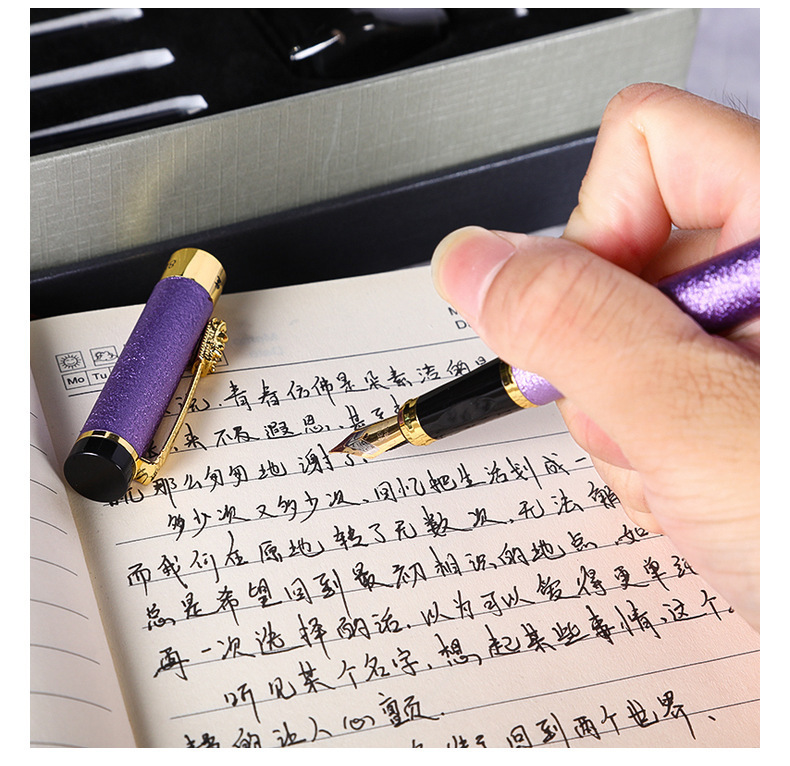 Mo Tu
流，青春仿佛是朵素洁的
来不及遐思，甚至
那么匆匆地谢了，
多少次又多少次，回忆把生活划成一
而我们在原地转了无数次，无法
总是希望回到最初相识的地点，如
再一次选择的话，以为可以爱得更单纯
听见某个名字，想起某些事情，这个
的让人心颤
回到两个世界、